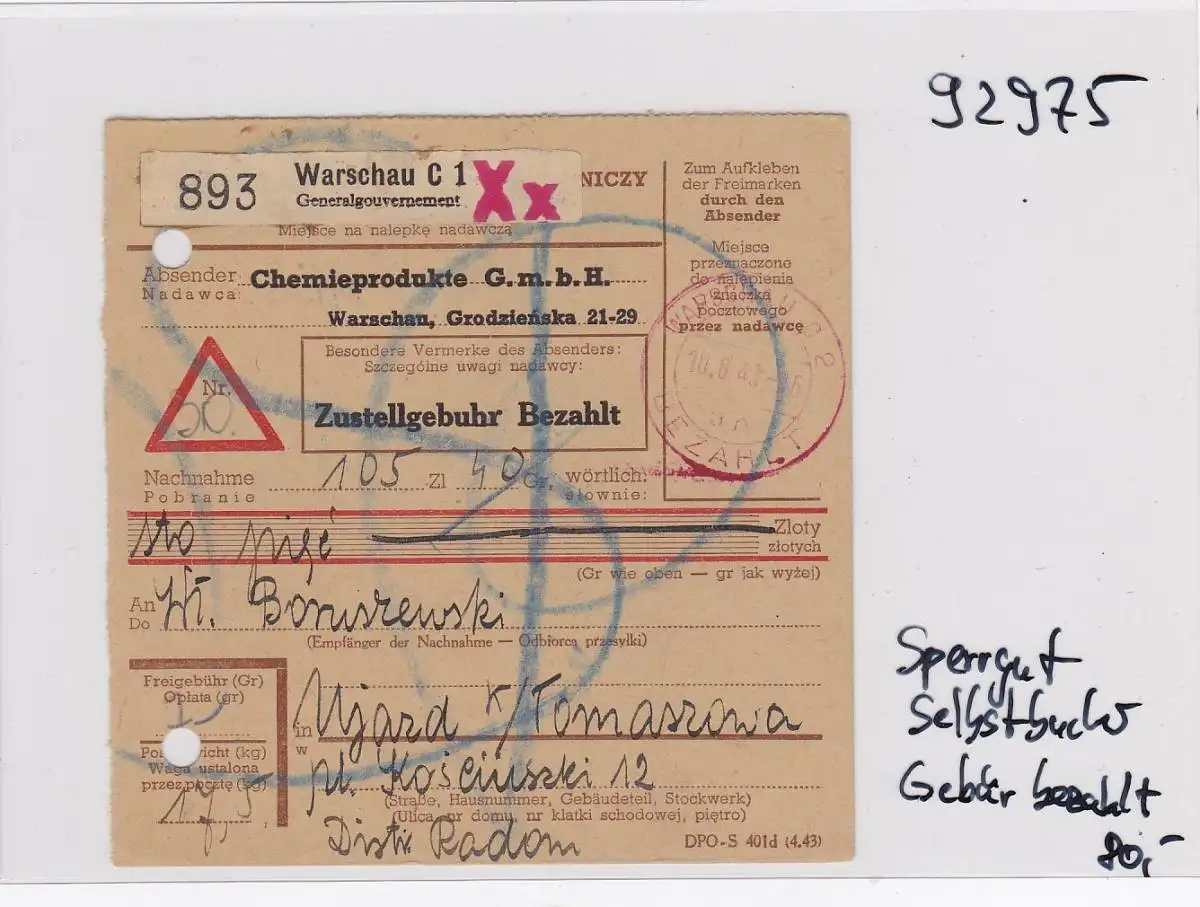 92975
893 Warschau C 1 X x NICZY
Generalgouvernement
Miejsce na nalepkę nadawczą
Zum Aufkleben
der Freimarken
durch den
Absender
Miejsce
przeznaczone
do nalepienia
znaczka
pocztowego
przez nadawcę
Absender: Chemieprodukte G.m.b.H.
Nadawca:
Warschau, Grodzieńska 21-29
WARSCHAU C 2
10.8.43
BEZAHLT
Besondere Vermerke des Absenders:
Szczególne uwagi nadawcy:
Zustellgebuhr Bezahlt
Nr.
50.
Nachnahme 105 Zl 40 Gr, wörtlich:
Pobranie słownie:
sto pięć Zloty
złotych
(Gr wie oben — gr jak wyżej)
An Wł. Boruszewski
Do
(Empfänger der Nachnahme — Odbiorca przesyłki)
Freigebühr (Gr)
Opłata (gr)
in Ujazd k/Tomaszowa
w
icht (kg)
Waga ustalona
przez pocztę (kg)
17,5
pl. Kościuszki 12
(Straße, Hausnummer, Gebäudeteil, Stockwerk)
(Ulica, nr domu, nr klatki schodowej, piętro)
Distr. Radom
DPO-S 401d (4.43)
Sperrgut
Selbstbucher
Gebür bezahlt
80,-